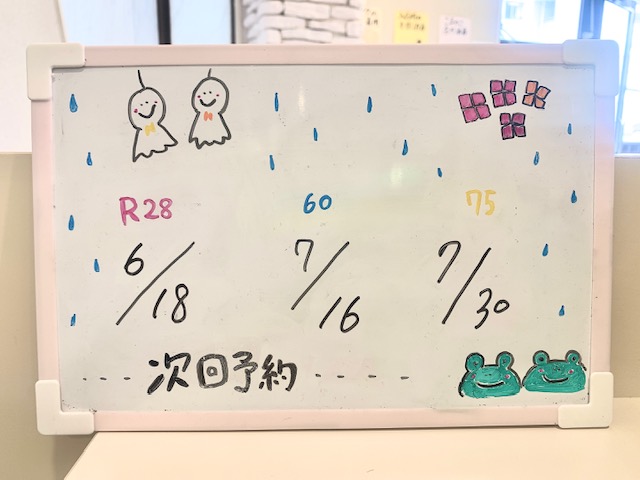 R28 60 75
6/18 7/16 7/30
----次回予約-----